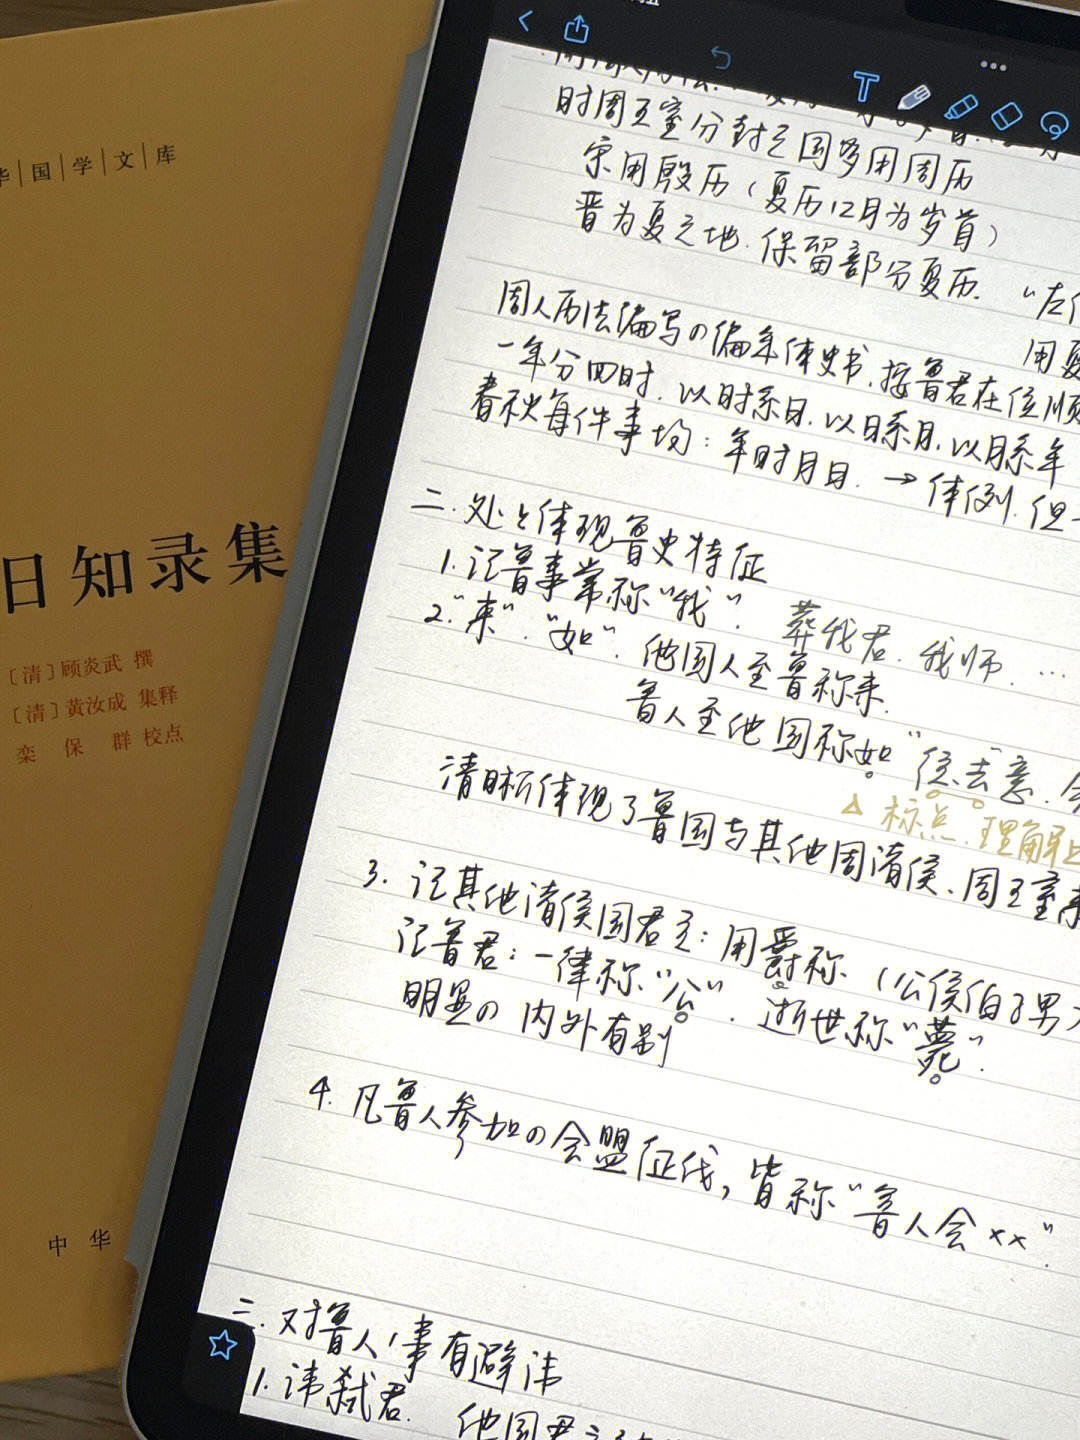 华|国|学|文|库
日知录集
〔清〕顾炎武 撰
〔清〕黄汝成 集释
栾 保 群 校点
中 华
T
时周王室分封之国多用周历
宋用殷历（夏历12月为岁首）
晋为夏之地.保留部分夏历. “左
用夏
周人历法编写の编年体史书.按鲁君在位顺
一年分四时.以时系日.以日系月.以月系年
春秋每件事均：年时月日. → 体例.但
二.处处体现鲁史特征
1.记鲁事常称“我”. 葬我君.我师.…
2.“来”.“如”.他国人至鲁称来.
鲁人至他国称如 “往、去”意.
△ 标点.理解
清晰体现了鲁国与其他周诸侯.周王室
3. 记其他诸侯国君主：用爵称（公侯伯子男
记鲁君：一律称“公”.逝世称“薨”.
明显の内外有别
4. 凡鲁人参加の会盟征伐，皆称“鲁人会××”.
三.对鲁人、事有避讳
1.讳弑君. 他国君